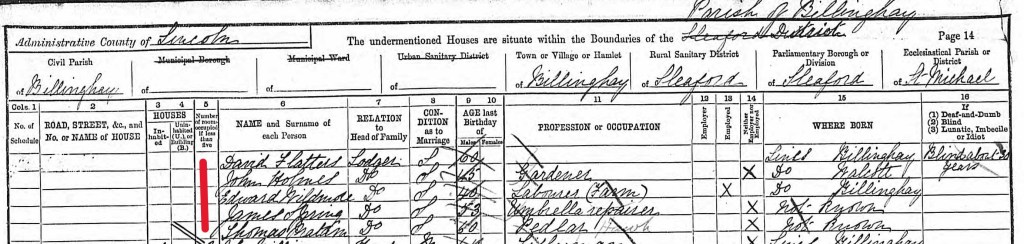 Parish of Billinghay
Administrative County of Lincoln
The undermentioned Houses are situate within the Boundaries of the Sleaford Division
Page 14
Civil Parish
of Billinghay
Municipal Borough
of
Municipal Ward
of
Urban Sanitary District
of
Town or Village or Hamlet
of Billinghay
Rural Sanitary District
of Sleaford
Parliamentary Borough or Division
of Sleaford
Ecclesiastical Parish or District
of St Michael
Cols. 1
2
3
4
5
6
7
8
9
10
11
12
13
14
15
16
No. of Schedule
ROAD, STREET, &c., and No. or NAME of HOUSE
HOUSES
Inhabited
Uninhabited (U.), or Building (B.)
Number of rooms occupied if less than five
NAME and Surname of each Person
RELATION to Head of Family
CONDITION as to Marriage
AGE last Birthday of
Males
Females
PROFESSION or OCCUPATION
Employer
Employed
Neither Employer nor Employed
WHERE BORN
If
(1) Deaf-and-Dumb
(2) Blind
(3) Lunatic, Imbecile or Idiot
David Flatters Lodger S 60 Lincs Billinghay Blind about 20 years
John Holmes Do S 45 Gardener X Do Walcott
Edward Wildmore Do S 40 Labourer (Farm) X Do Billinghay
James Do S 53 Umbrella repairer X Not Known
Thomas Do S 50 Pedlar X Not Known
Lincs Billinghay